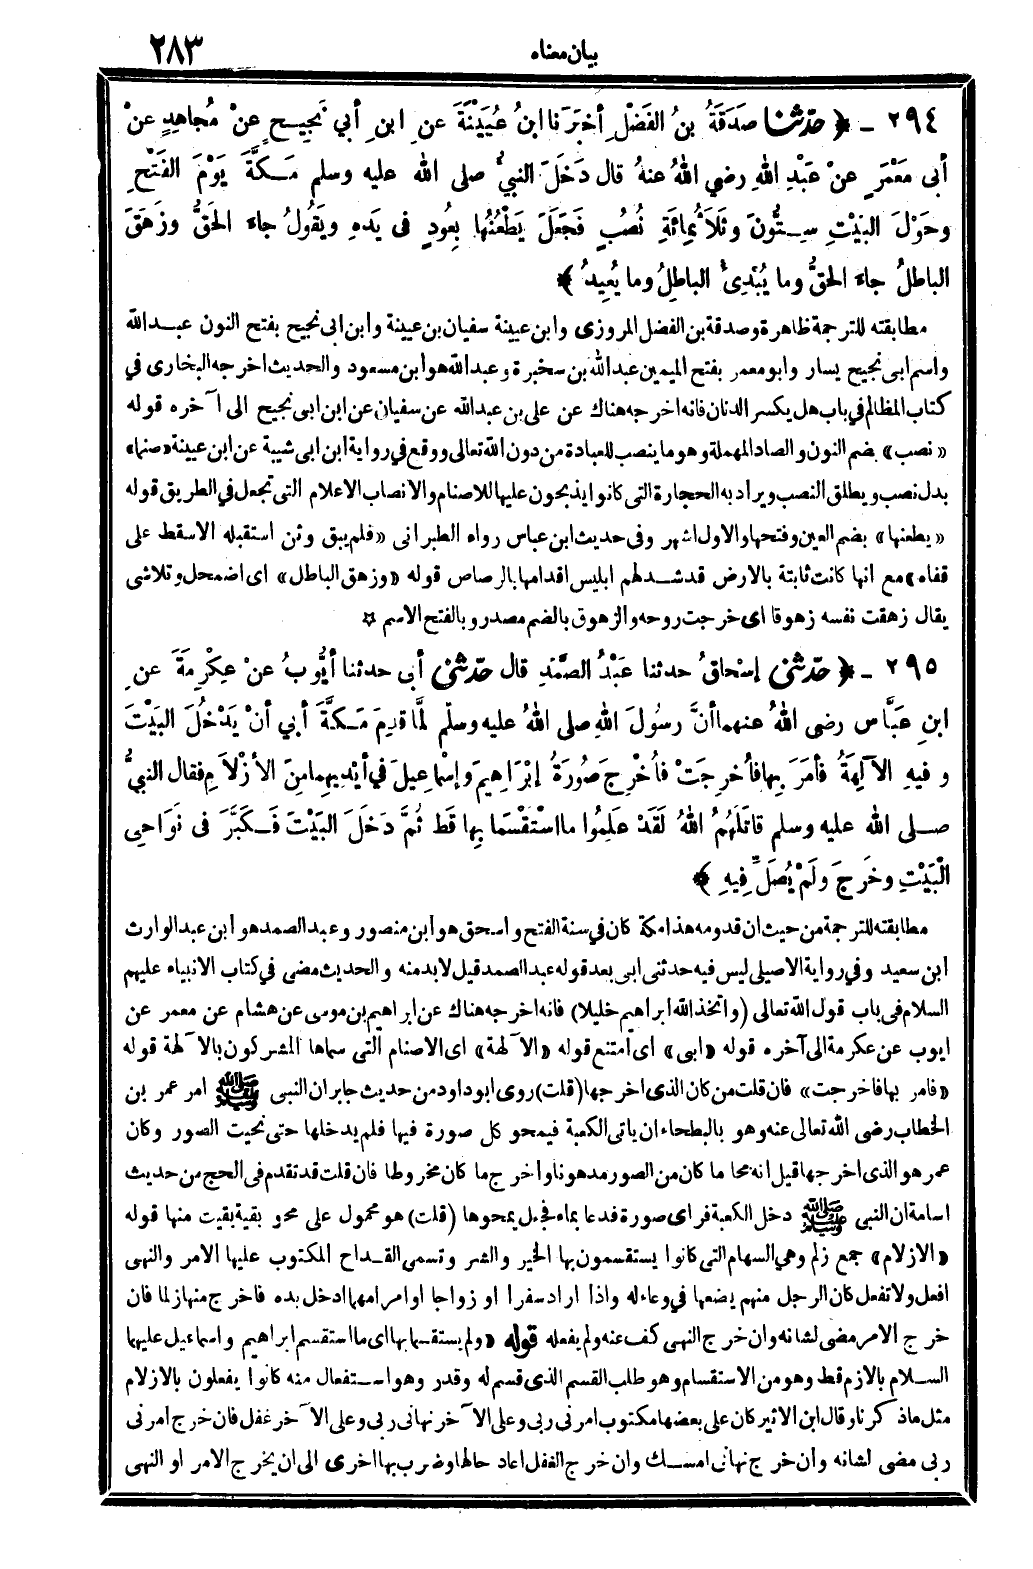 بيان معناه
٢٨٣
٢٩٤ ـ ﴿ حدّثنا صَدَقَةُ بنُ الفَضْلِ أخبَرَنا ابنُ عُيَيْنَةَ عنِ ابنِ أبي نَجِيحٍ عنْ مُجاهِدٍ عنْ
أبى مَعْمَرٍ عنْ عَبْدِ اللهِ رضي اللهُ عنهُ قال دَخَلَ النبيُّ صلى الله عليه وسلم مَكَّةَ يَوْمَ الفَتْحِ
وحَوْلَ البَيْتِ سِتُّونَ وثَلاَثُمِائَةِ نُصُبٍ فَجَعَلَ يَطْعُنُها بِعُودٍ فى يَدِهِ ويَقُولُ جاءَ الحَقُّ وزَهَقَ
الباطلُ جاءَ الحَقُّ وما يُبْدِىءُ الباطِلُ وما يُعِيدُ ﴾
مطابقته للترجمة ظاهرة وصدقة بن الفضل المروزى وابن عيينة سفيان بن عيينة وابن ابى نجيح بفتح النون عبد الله
واسم ابى نجيح يسار وابو معمر بفتح الميمين عبد الله بن سخبرة وعبد الله هو ابن مسعود والحديث اخرجه البخارى في
كتاب المظالم في باب هل يكسر الدنان فانه اخرجه هناك عن على بن عبد الله عن سفيان عن ابن ابى نجيح الى آخره قوله
«نصب» بضم النون والصاد المهملة وهو ما ينصب للعبادة من دون الله تعالى ووقع في رواية ابن ابى شيبة عن ابن عيينة «صنما»
بدل نصب ويطلق النصب ويراد به الحجارة التى كانوا يذبحون عليها للاصنام والانصاب الاعلام التى تجعل في الطريق قوله
«يطعنها» بضم العين وفتحها والاول اشهر وفى حديث ابن عباس رواه الطبرانى «فلم يبق وثن استقبله الا سقط على
قفاه» مع انها كانت ثابتة بالارض قد شد لهم ابليس اقدامها بالرصاص قوله «وزهق الباطل» اى اضمحل وتلاشى
يقال زهقت نفسه زهوقا اى خرجت روحه والزهوق بالضم مصدر وبالفتح الاسم ✡
٢٩٥ ـ ﴿ حدّثنى إسْحاقُ حدثنا عَبْدُ الصَّمَدِ قال حدّثنى أبى حدثنا أيُّوبُ عنْ عِكْرِمَةَ عنِ
ابنِ عَبَّاسٍ رضى اللهُ عنهما أنَّ رسُولَ اللهِ صلى اللهُ عليه وسلّم لمَّا قدِمَ مَكَّةَ أبي أنْ يَدْخُلَ البَيْتَ
وفيهِ الآلِهَةُ فأمَرَ بِها فأُخرِجَتْ فأُخْرِجَ صُورَةُ إبْرَاهِيمَ وإسْماعِيلَ في أيْدِيهِما مِنَ الأزْلاَمِ فقال النبيُّ
صلى الله عليه وسلم قاتَلَهُمُ اللهُ لَقَدْ علِمُوا ما اسْتَقْسَما بِها قط ثُمَّ دَخَلَ البَيْتَ فَكَبَّرَ فى نَوَاحِى
الْبَيْتِ وخَرَجَ ولَمْ يُصَلِّ فِيهِ ﴾
مطابقته للترجمة من حيث ان قدومه هذا مكة كان في سنة الفتح واسحق هو ابن منصور وعبد الصمد هو ابن عبد الوارث
ابن سعيد وفي رواية الاصيلى ليس فيه حدثنى ابى بعد قوله عبد الصمد قيل لا بد منه والحديث مضى في كتاب الانبياء عليهم
السلام فى باب قول الله تعالى (واتخذ الله ابراهيم خليلا) فانه اخرجه هناك عن ابراهيم بن موسى عن هشام عن معمر عن
ايوب عن عكرمة الى آخره قوله «ابى» اى امتنع قوله «الآلهة» اى الاصنام التى سماها المشركون بالآلهة قوله
«فامر بها فاخرجت» فان قلت من كان الذى اخرجها (قلت) روى ابو داود من حديث جابر ان النبى ﷺ امر عمر بن
الخطاب رضى الله تعالى عنه وهو بالبطحاء ان ياتى الكعبة فيمحو كل صورة فيها فلم يدخلها حتى نحيت الصور وكان
عمر هو الذى اخرجها قيل انه محا ما كان من الصور مدهونا واخرج ما كان مخروطا فان قلت قد تقدم فى الحج من حديث
اسامة ان النبى ﷺ دخل الكعبة فراى صورة فدعا بماء فجعل يمحوها (قلت) هو محمول على محو بقية بقيت منها قوله
«الازلام» جمع زلم وهي السهام التى كانوا يستقسمون بها الخير والشر وتسمى القداح المكتوب عليها الامر والنهى
افعل ولا تفعل كان الرجل منهم يضعها في وعاء له واذا اراد سفرا او زواجا او امرا مهما ادخل يده فاخرج منها زلما فان
خرج الامر مضى لشانه وان خرج النهى كف عنه ولم يفعله قوله «ولم يستقسما بها اى ما استقسم ابراهيم واسماعيل عليهما
السلام بالازم قط وهو من الاستقسام وهو طلب القسم الذى قسم له وقدر وهو استفعال منه كانوا يفعلون بالازلام
مثل ماذكرنا وقال ابن الاثير كان على بعضها مكتوب امرنى ربى وعلى الآخر نهانى ربى وعلى الآخر غفل فان خرج امرنى
ربى مضى لشانه وان خرج نهانى امسك وان خرج الغفل اعاد حالها وضرب بها اخرى الى ان يخرج الامر او النهى